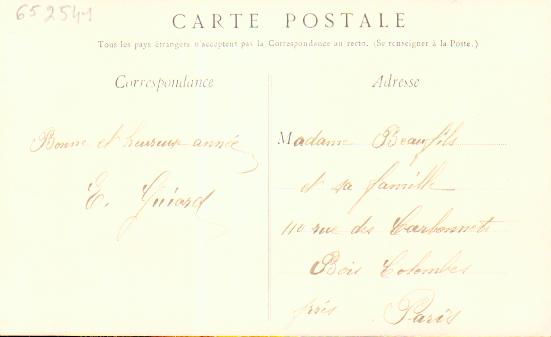 652541
CARTE POSTALE
Tous les pays étrangers n'acceptent pas la Correspondance au recto. (Se renseigner à la Poste.)
Correspondance
Bonne et heureuse année
E. Guiard
Adresse
Madame Beaufils
et sa famille
110 rue des Carbonnets
Bois Colombes
près Paris